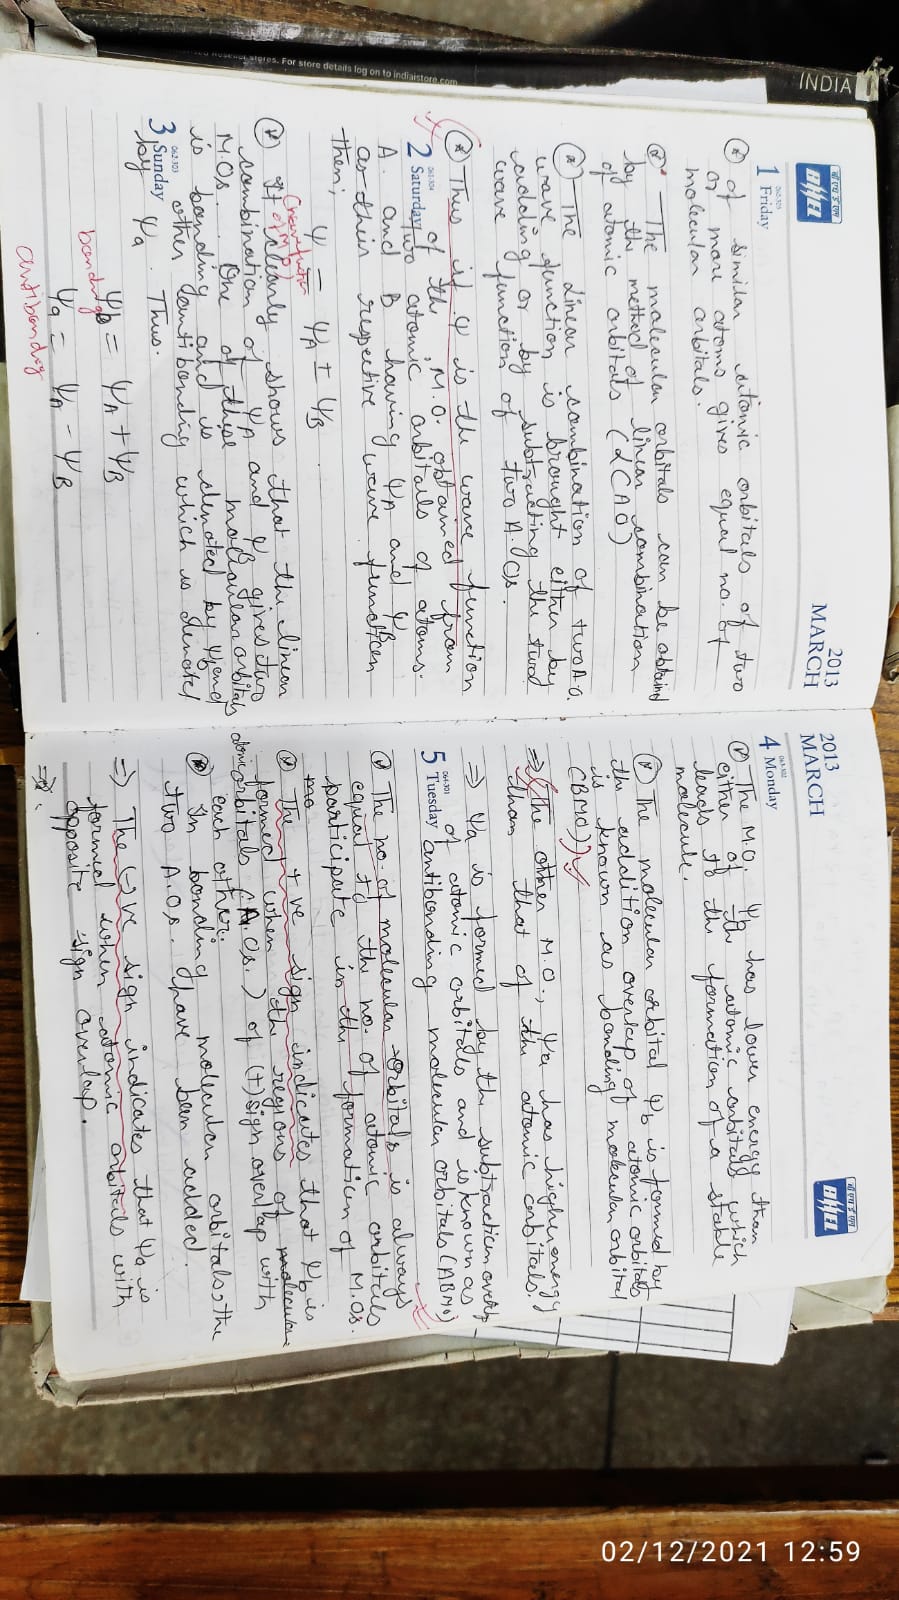 INDIA
stores. For store details log on to indiaistore.com
बी एच ई एल
BHEL
2013
MARCH
1 Friday
of similar atomic orbitals of two
or more atoms gives equal no. of
molecular orbitals.
The molecular orbitals can be obtained
by the method of linear combination
of atomic orbitals (LCAO)
The linear combination of two A.O.
wave function is brought either by
adding or by subtracting the two
wave function of two A.Os.
Thus if ψ is the wave function
of the M.O. obtained from
2 Saturday two atomic orbitals of atoms
A and B having ψA and ψB
as their respective wave function
then;
ψ = ψA ± ψB
(wave function of M.O)
It clearly shows that the linear
combination of ψA and ψB gives two
M.Os. One of these molecular orbitals
is bonding and is denoted by ψb and
other antibonding which is denoted
3 Sunday
by ψa. Thus.
ψb = ψA + ψB
bonding
ψa = ψA - ψB
antibonding
2013
MARCH
बी एच ई एल
BHEL
4 Monday
The M.O. ψb has lower energy than
either of the atomic orbitals which
leads to the formation of a stable
molecule.
The molecular orbital ψb is formed by
the addition overlap of atomic orbitals
is known as bonding molecular orbital
(BMO))
⇒ The other M.O., ψa has high energy
than that of the atomic orbitals.
⇒ ψa is formed by the subtraction overlap
of atomic orbitals and is known as
5 Tuesday antibonding molecular orbitals (ABMO)
The no. of molecular orbitals is always
equal to the no. of atomic orbitals
participate in the formation of M.Os.
The +ve sign indicates that ψb is
formed when the regions of molecular
atomic orbitals (A.Os.) of (+) sign overlap with
each other.
In bonding molecular orbitals, the
two A.Os. have been added.
⇒ The (-)ve sign indicates that ψa is
formed when atomic orbitals with
opposite sign overlap.
⇒
02/12/2021 12:59